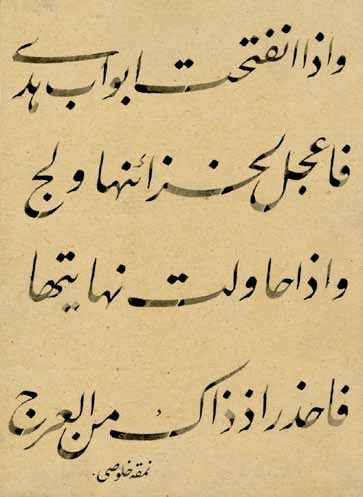 واذا انفتحت ابواب هدى
فاعجل لخزائنها ولج
واذا حاولت نهايتها
فاحذر اذ ذاك من العرج
نمقه خلوصی